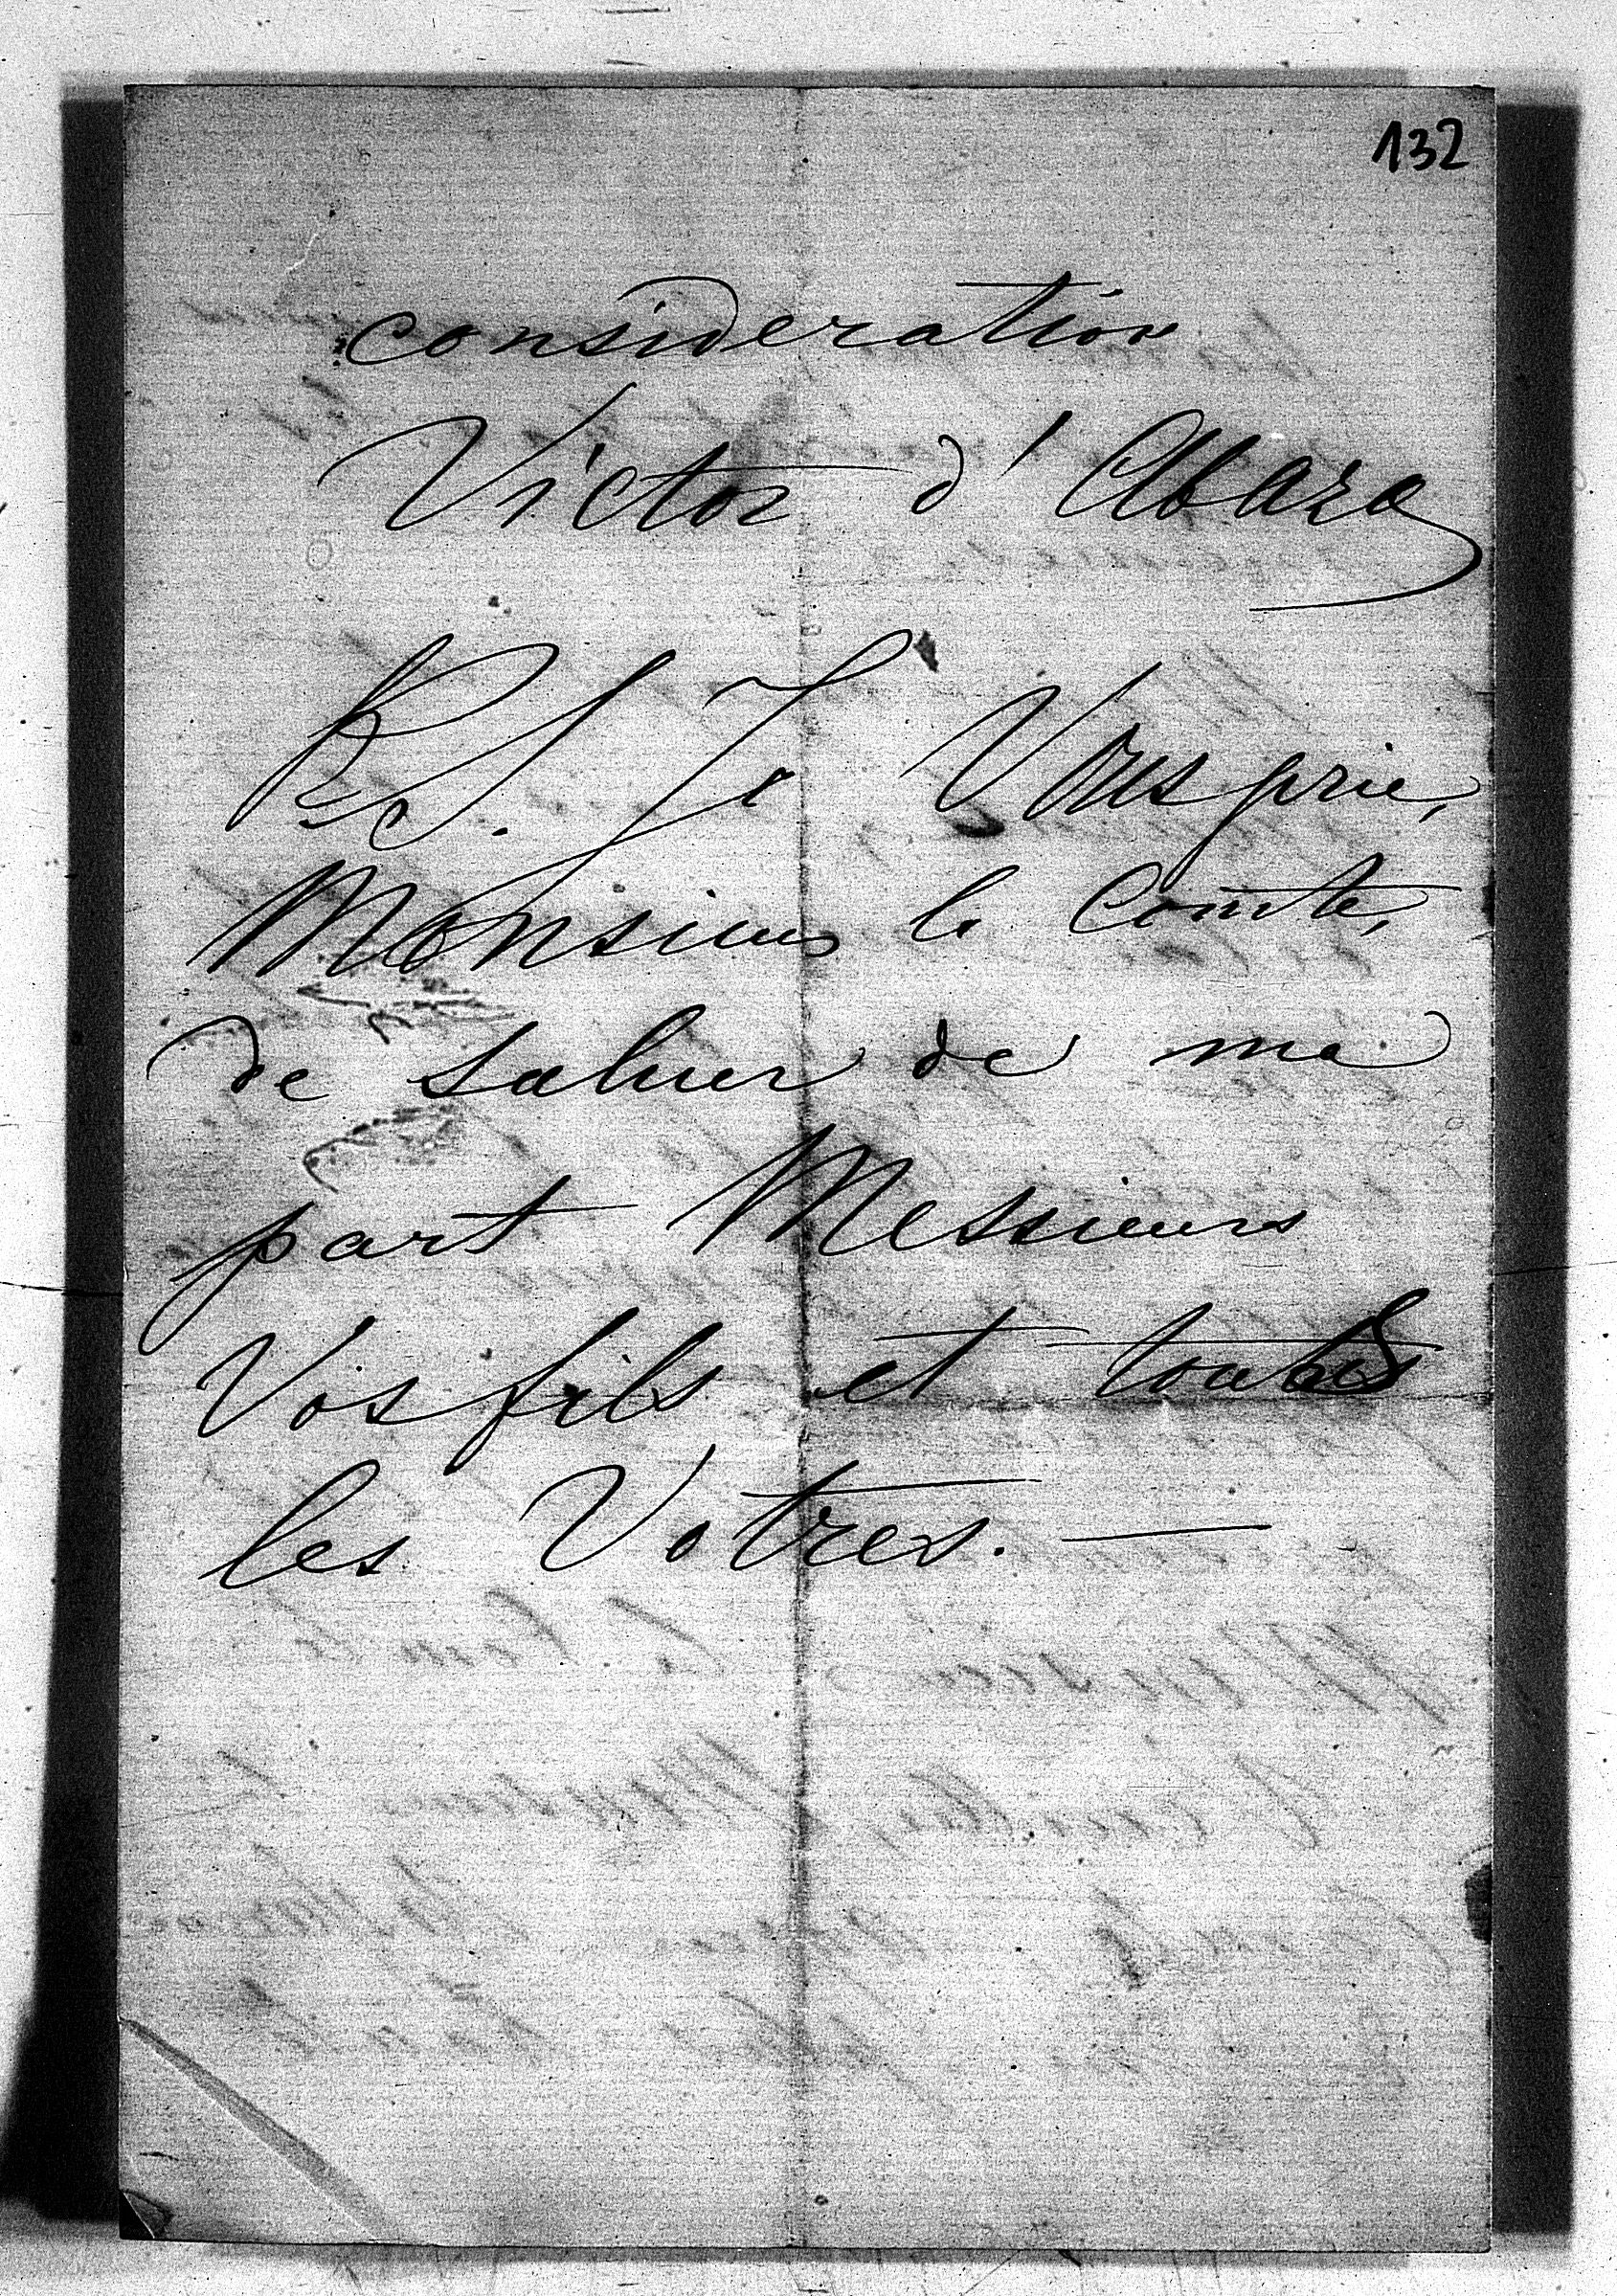 132
consideration
Victor d'Abaza
P.S. Je Vous prie,
Monsieur le Comte,
de saluer de ma
part Messieurs
Vos fils et toutes
les Votres. —